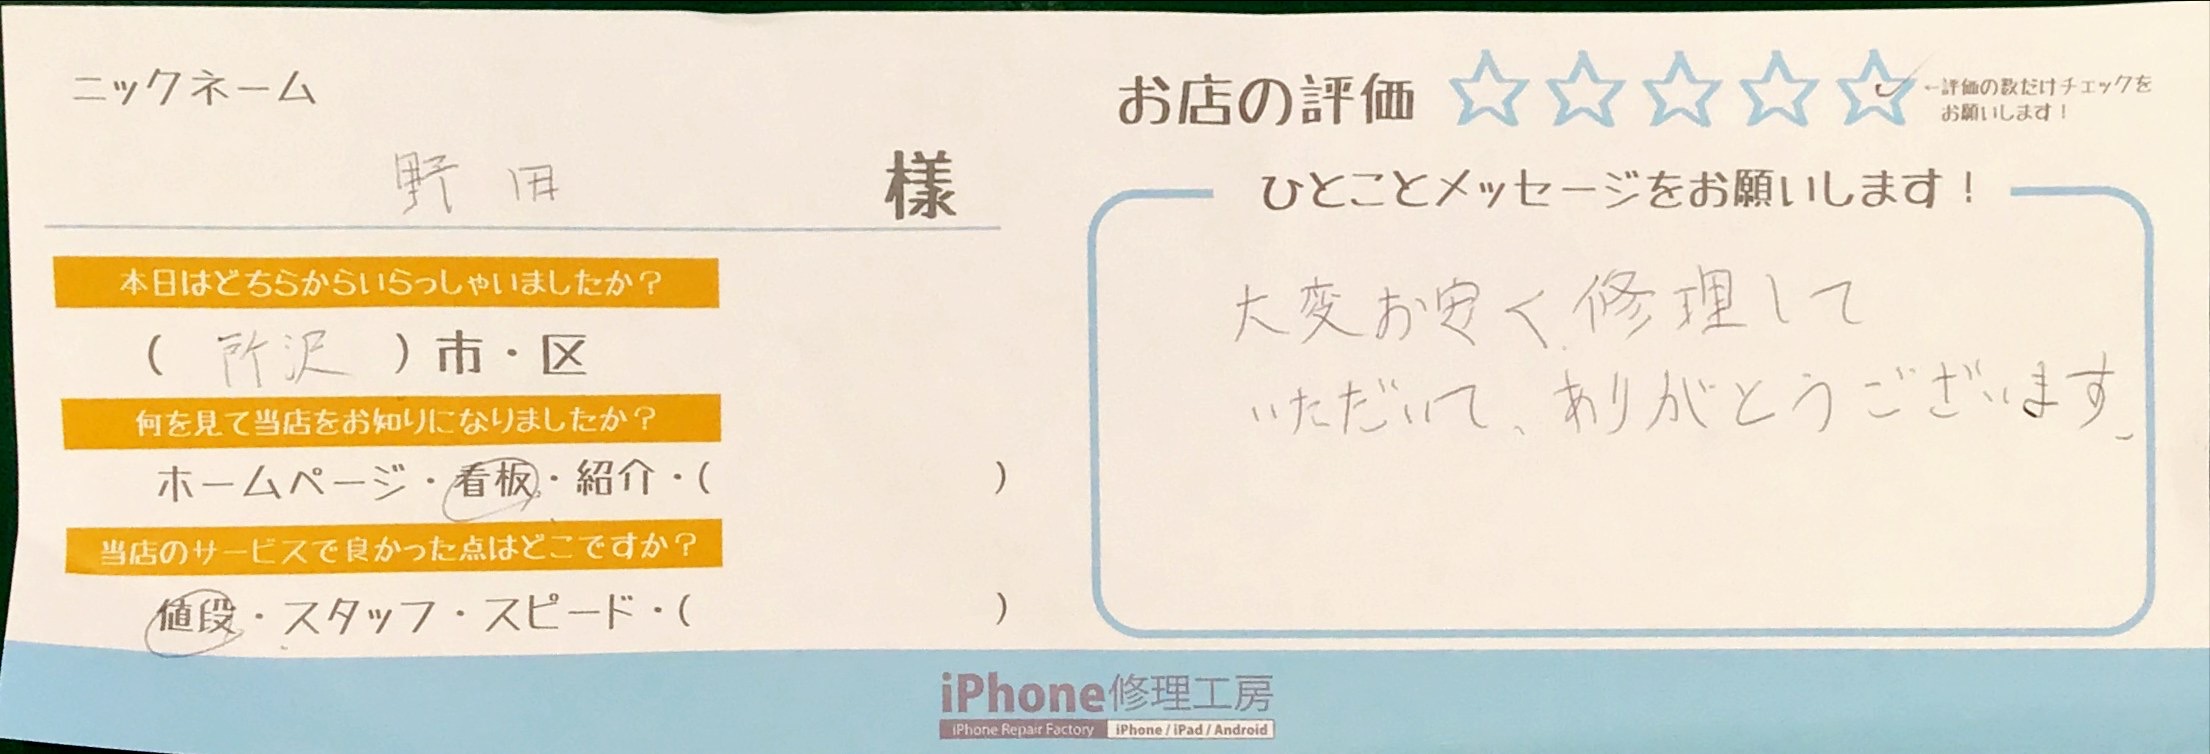 ニックネーム
野田 様
本日はどちらからいらっしゃいましたか？
( 所沢 ) 市・区
何を見て当店をお知りになりましたか？
ホームページ・看板・紹介・( )
当店のサービスで良かった点はどこですか？
値段・スタッフ・スピード・( )
お店の評価 ☆☆☆☆☆
←評価の数だけチェックを
お願いします！
ひとことメッセージをお願いします！
大変お安く修理して
いただいて、ありがとうございます。
iPhone修理工房
iPhone Repair Factory iPhone / iPad / Android